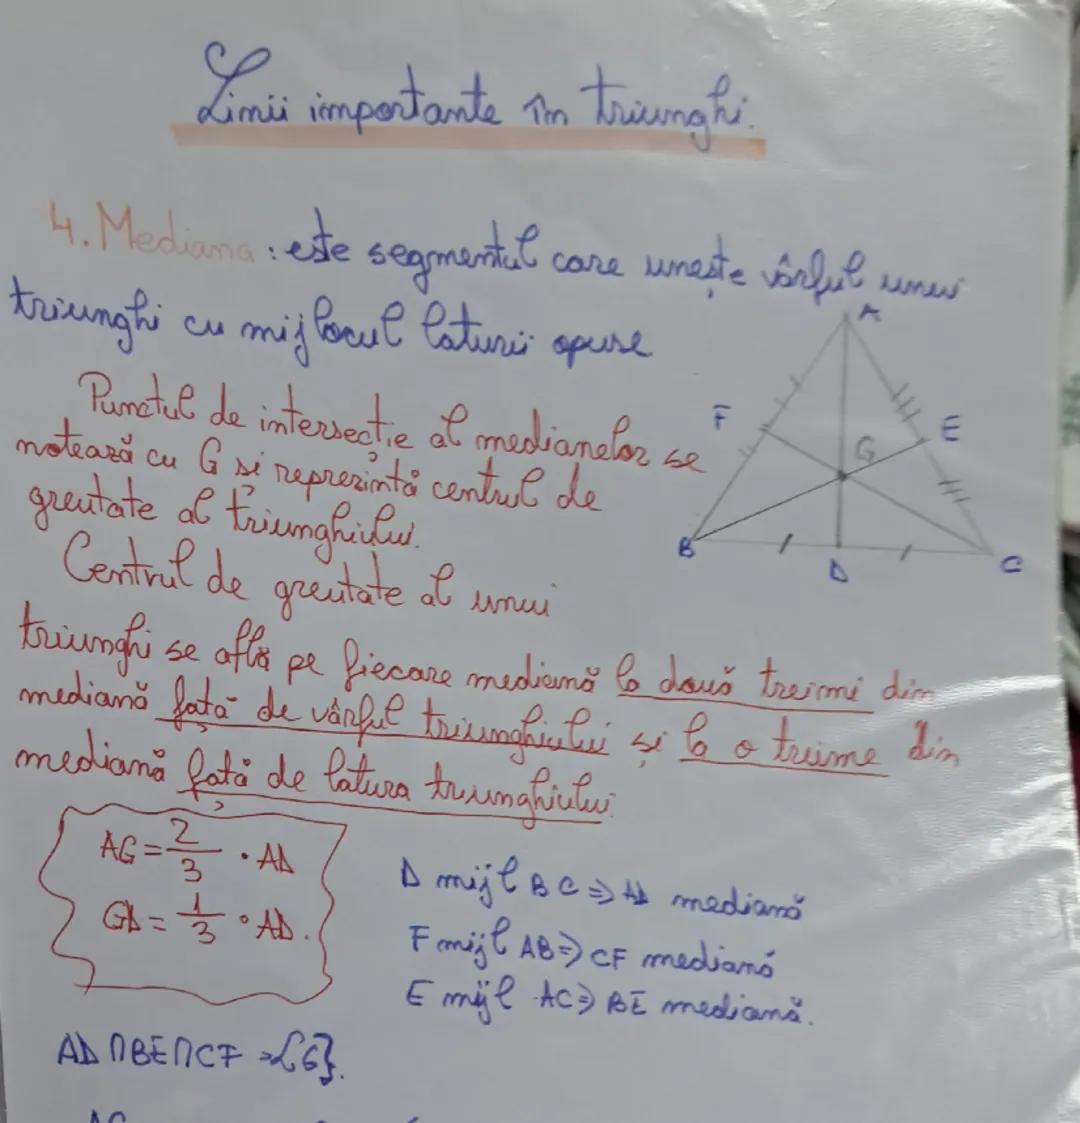 Linii importante în triunghi.
4. Mediana: este segmentul care unește vârful unui
triunghi cu mijlocul laturii opuse
Punctul de intersecție al medianelor se
notează cu G și reprezintă centrul de
greutate al triunghiului.
Centrul de greutate al unui
triunghi se află pe fiecare mediană la două treimi din
mediană față de vârful triunghiului și la o treime din
mediană față de latura triunghiului.
A
F
E
G
B
D
C
AG = 2/3 · AD
GD = 1/3 · AD.
D mijl BC ⇒ AD mediană
F mijl AB ⇒ CF mediană
E mijl AC ⇒ BE mediană.
AD ∩ BE ∩ CF = {G}.